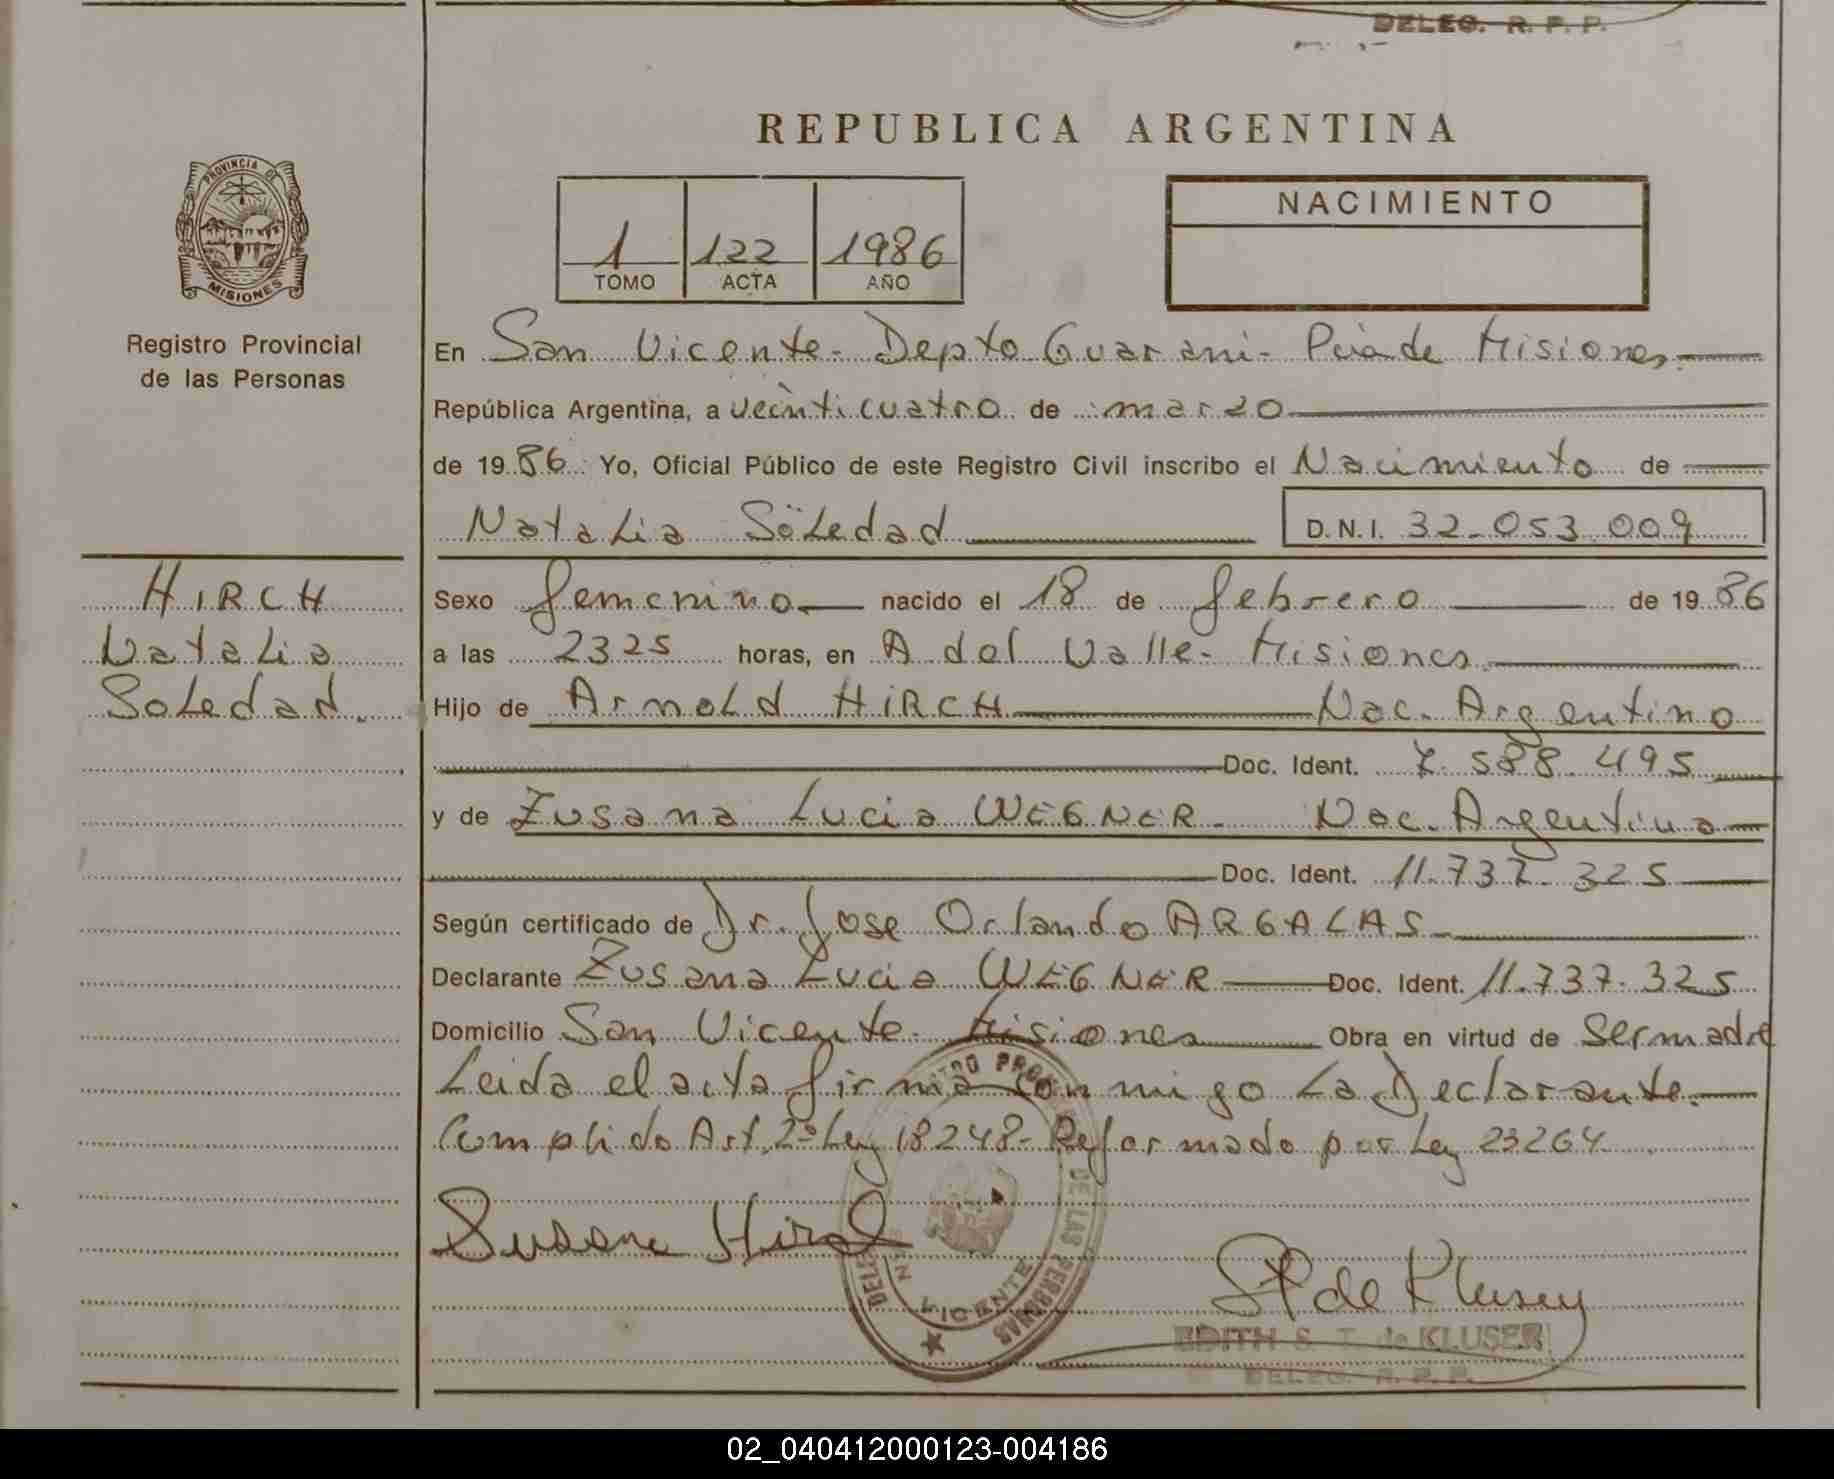 DELEG. R. P. P.
REPUBLICA ARGENTINA
PROVINCIA DE
MISIONES
Registro Provincial
de las Personas
1 122 1986
TOMO ACTA AÑO
NACIMIENTO
En San Vicente - Depto Guarani - Pcia de Misiones
República Argentina, a veinticuatro de marzo
de 1986 Yo, Oficial Público de este Registro Civil inscribo el Nacimiento de
Natalia Soledad D.N.I. 32.053.009
HIRCH
Natalia
Soledad.
Sexo femenino nacido el 18 de febrero de 1986
a las 2325 horas, en A. del Valle - Misiones
Hijo de Arnold HIRCH Nac. Argentino
Doc. Ident. 7.588.495
y de Zusana Lucia WEGNER - Nac. Argentina
Doc. Ident. 11.737.325
Según certificado de Dr. Jose Orlando ARGALAS
Declarante Zusana Lucia WEGNER Doc. Ident. 11.737.325
Domicilio San Vicente - Misiones Obra en virtud de Ser madre
Leida el acta firma conmigo La Declarante.
Cumplido Art. 2º Ley 18248 - Reformado por Ley 23264.
DE LAS PERSONAS
VICENTE
Susana Hirch
de Kluser
EDITH S. T. de KLUSER
DELEG. R. P. P.
02_040412000123-004186